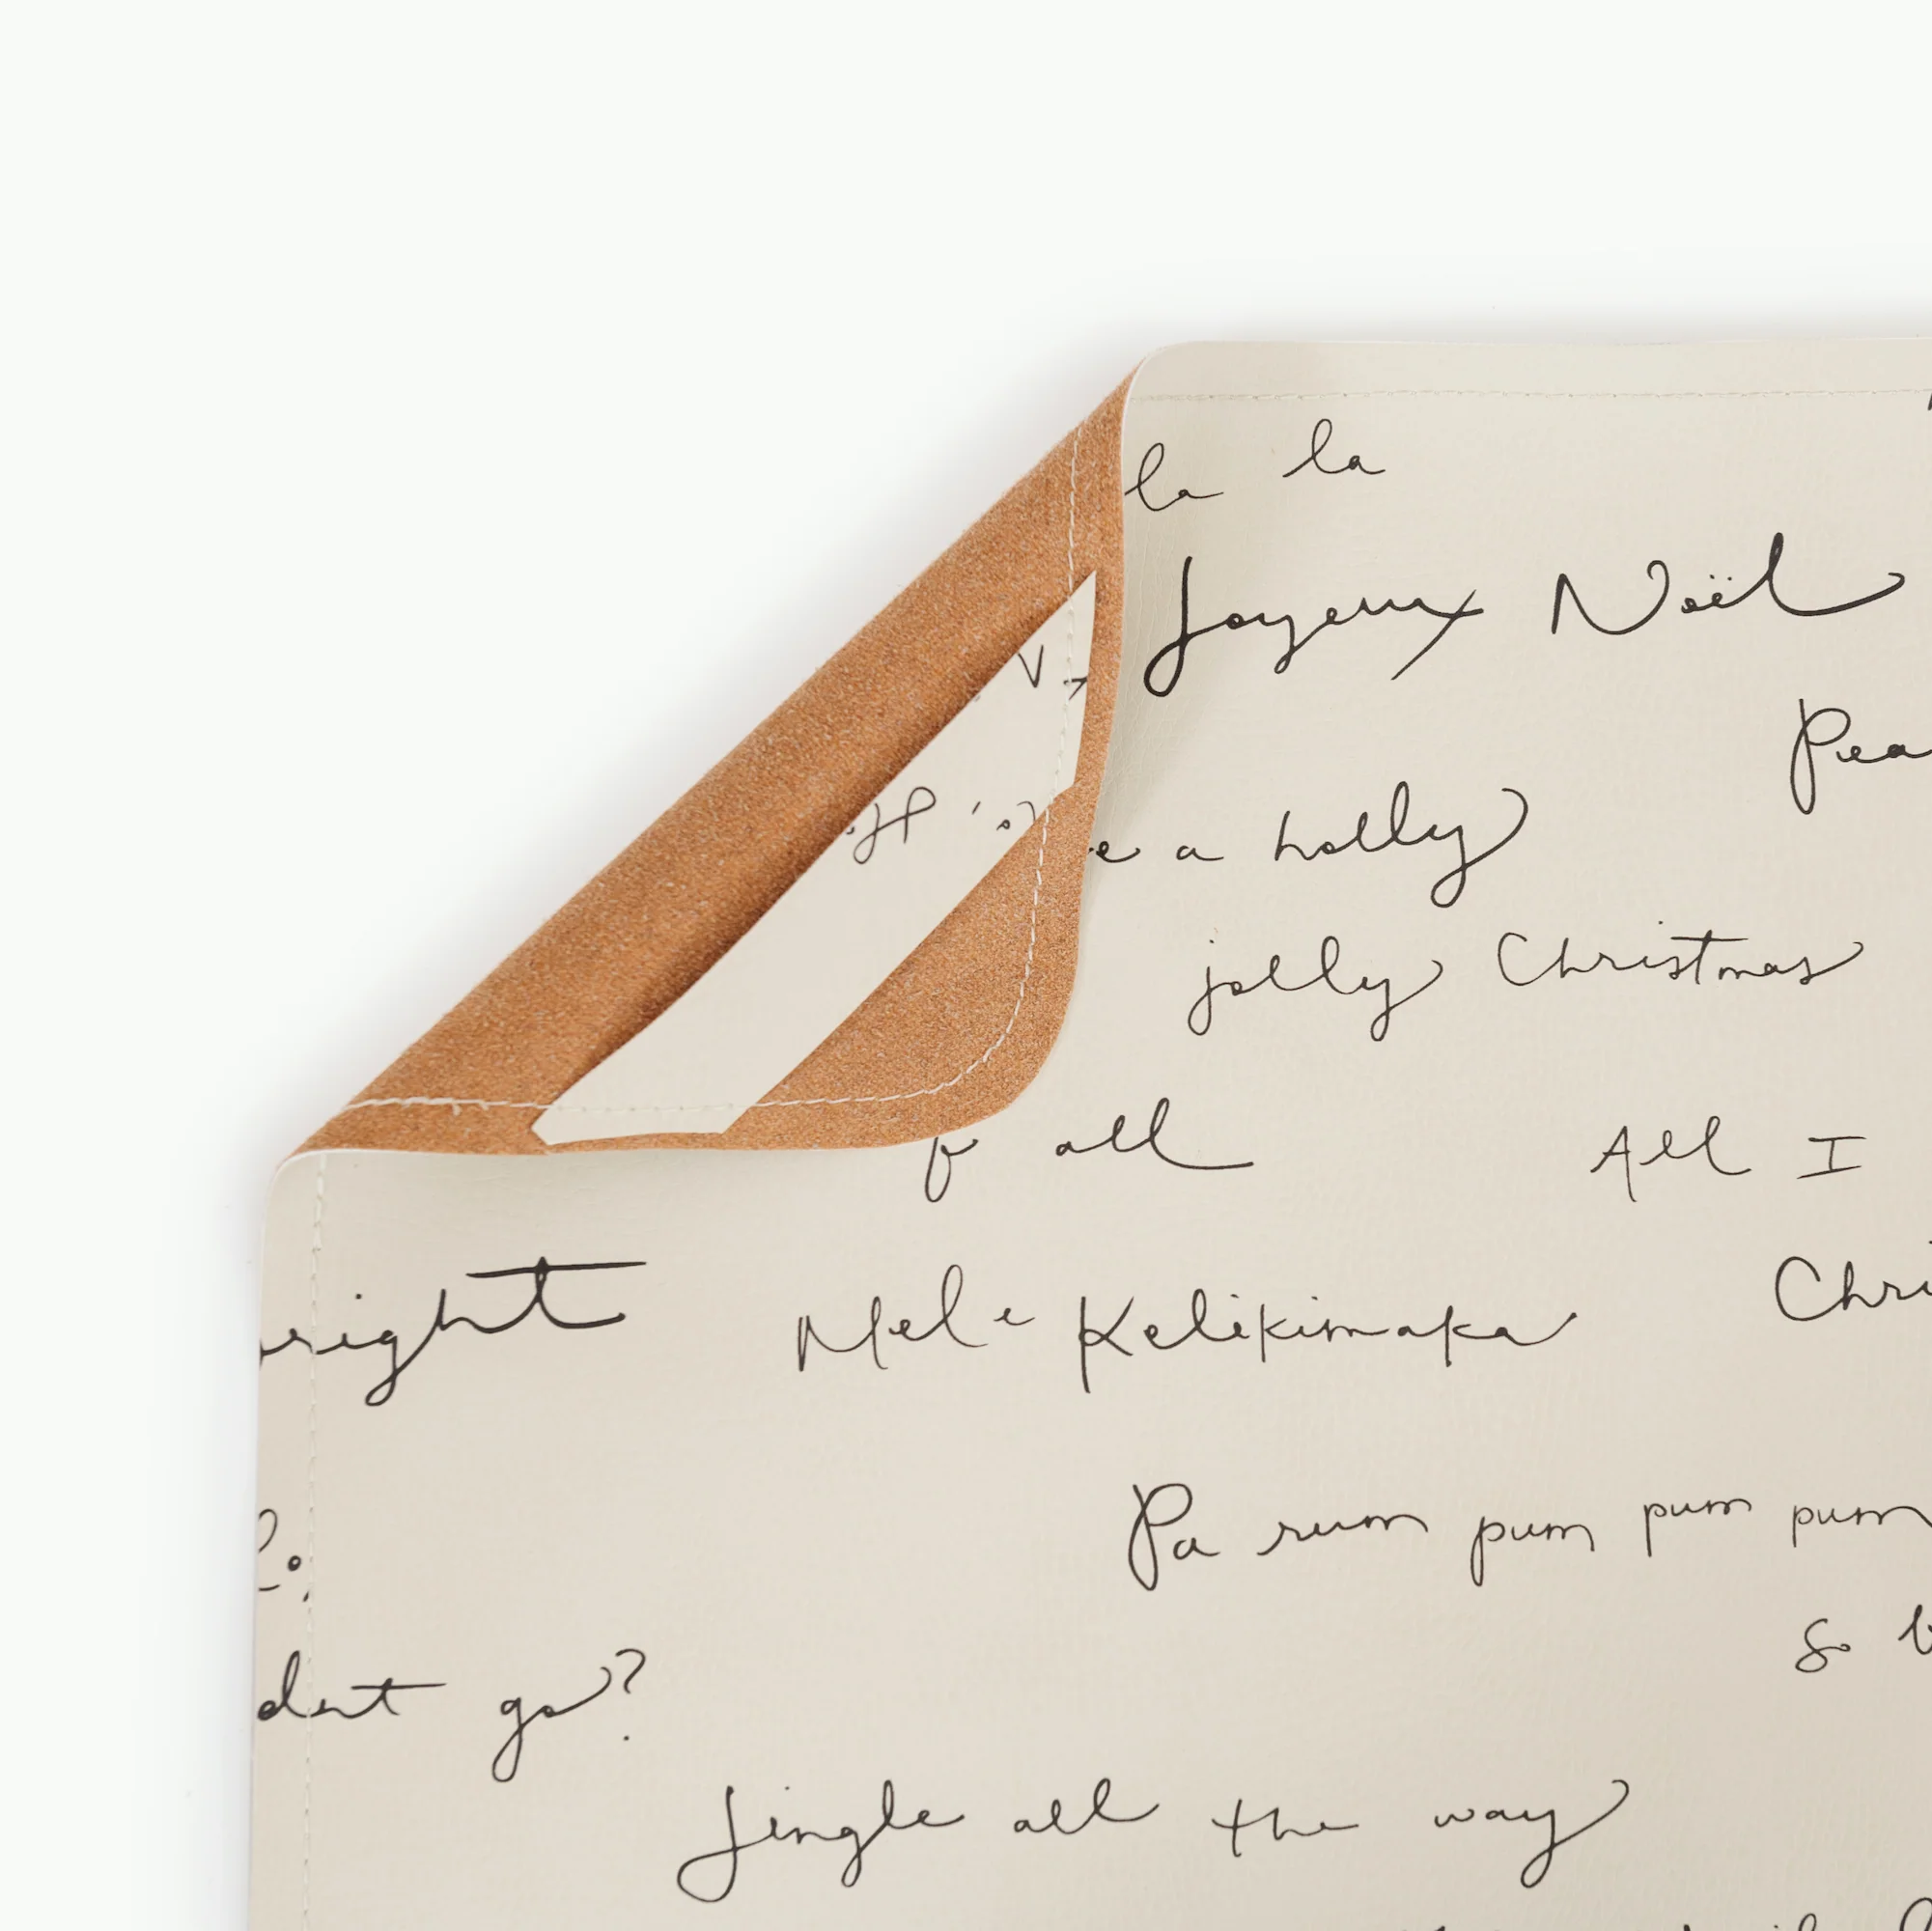 la la
Joyeux Noël
Pea
e a holly
jolly Christmas
all
All I
right
Mele Kelikimaka
Chri
Pa rum pum pum pum
so b
dent go?
Jingle all the way